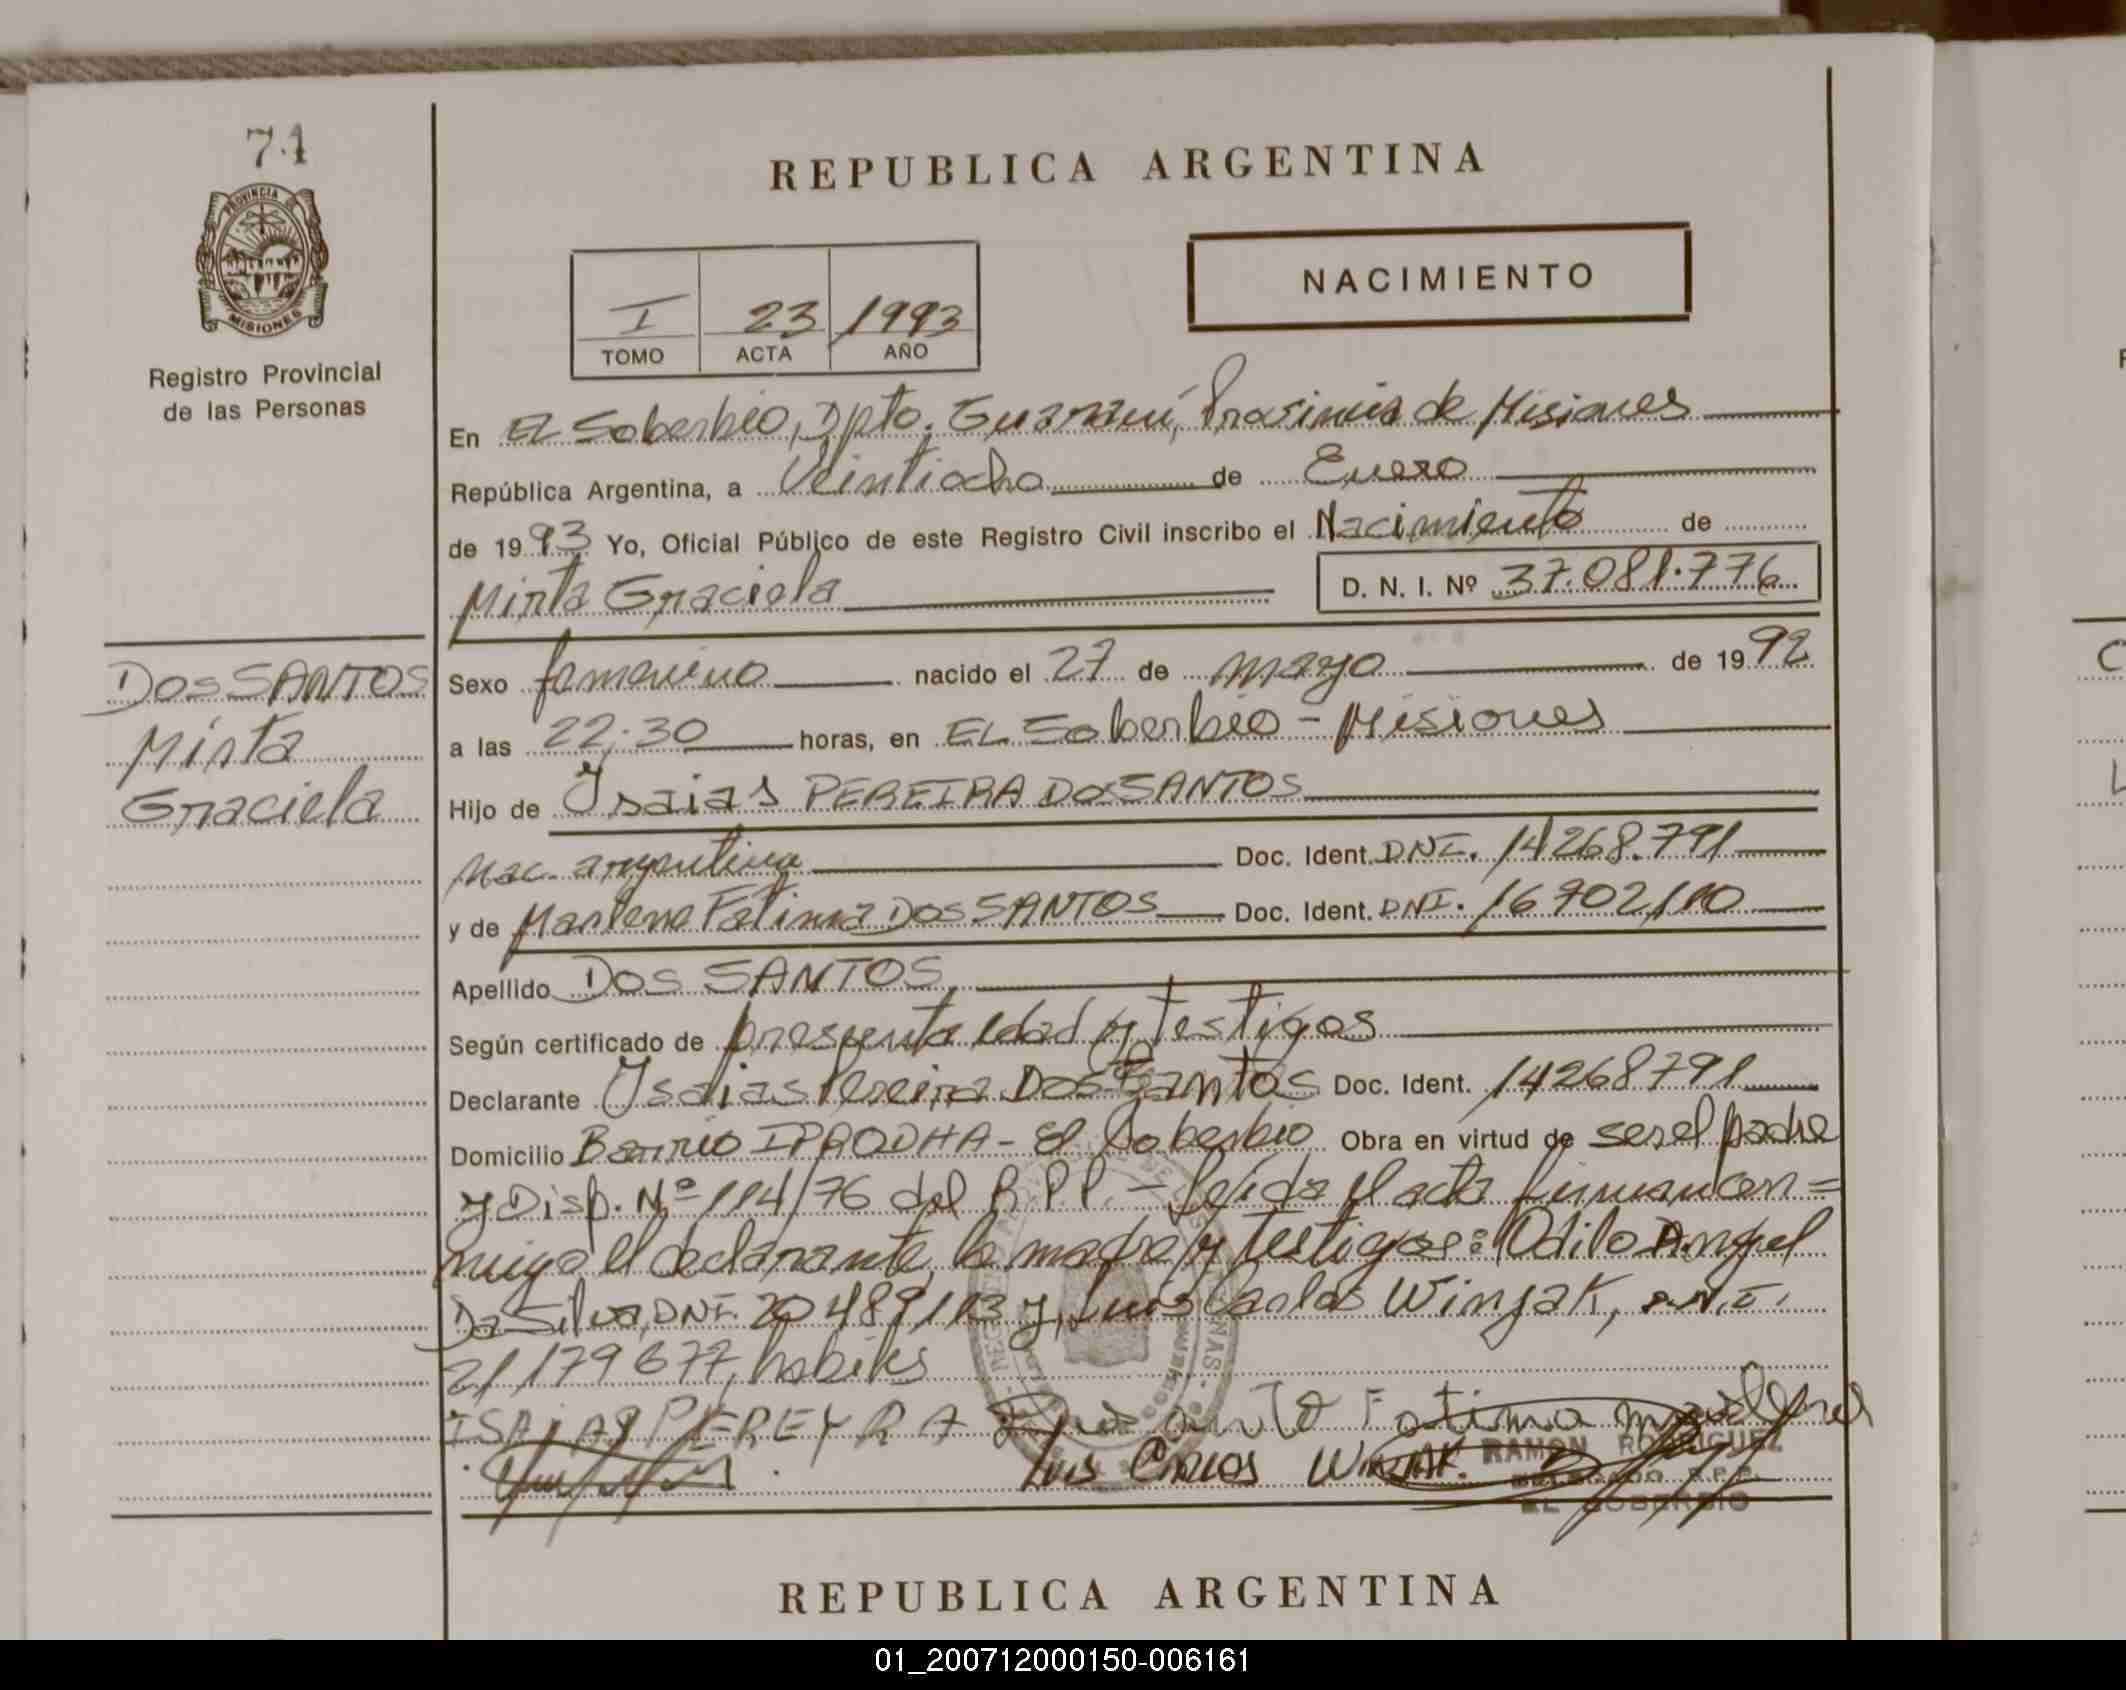 74
REPUBLICA ARGENTINA
PROVINCIA DE
MISIONES
Registro Provincial
de las Personas
I 23 1993
TOMO ACTA AÑO
NACIMIENTO
En El Soberbio, Dpto. Guaraní, Provincia de Misiones
República Argentina, a Veintiocho de Enero
de 1993 Yo, Oficial Público de este Registro Civil inscribo el Nacimiento de
Mirta Graciela D. N. I. Nº 37.081.776
DOS SANTOS
Mirta
Graciela
Sexo femenino nacido el 27 de mayo de 1992
a las 22:30 horas, en EL Soberbio - Misiones
Hijo de Isaias PEREIRA DOS SANTOS
Nac. argentina Doc. Ident. DNI. 14268.791
y de Marlene Fatima DOS SANTOS Doc. Ident. DNI. 16702,110
Apellido DOS SANTOS
Según certificado de presunta edad y testigos
Declarante Isaias Pereira Dos Santos Doc. Ident. 14268791
Domicilio Barrio IPRODHA - El Soberbio Obra en virtud de ser el padre
y Disp. Nº 114/76 del R.P.P. - Leída el acta firman con=
migo el declarante, la madre y testigos: Odilo Angel
Da Silva, DNI. 20489,113 y, Luis Carlos Winjak, D.N.I.
21,179677, habiles
ISAIAS PEREYRA Fatima
Luis Carlos
RAMON RODRIGUEZ
DELEGADO R.P.P.
EL SOBERBIO
REPUBLICA ARGENTINA
01_200712000150-006161